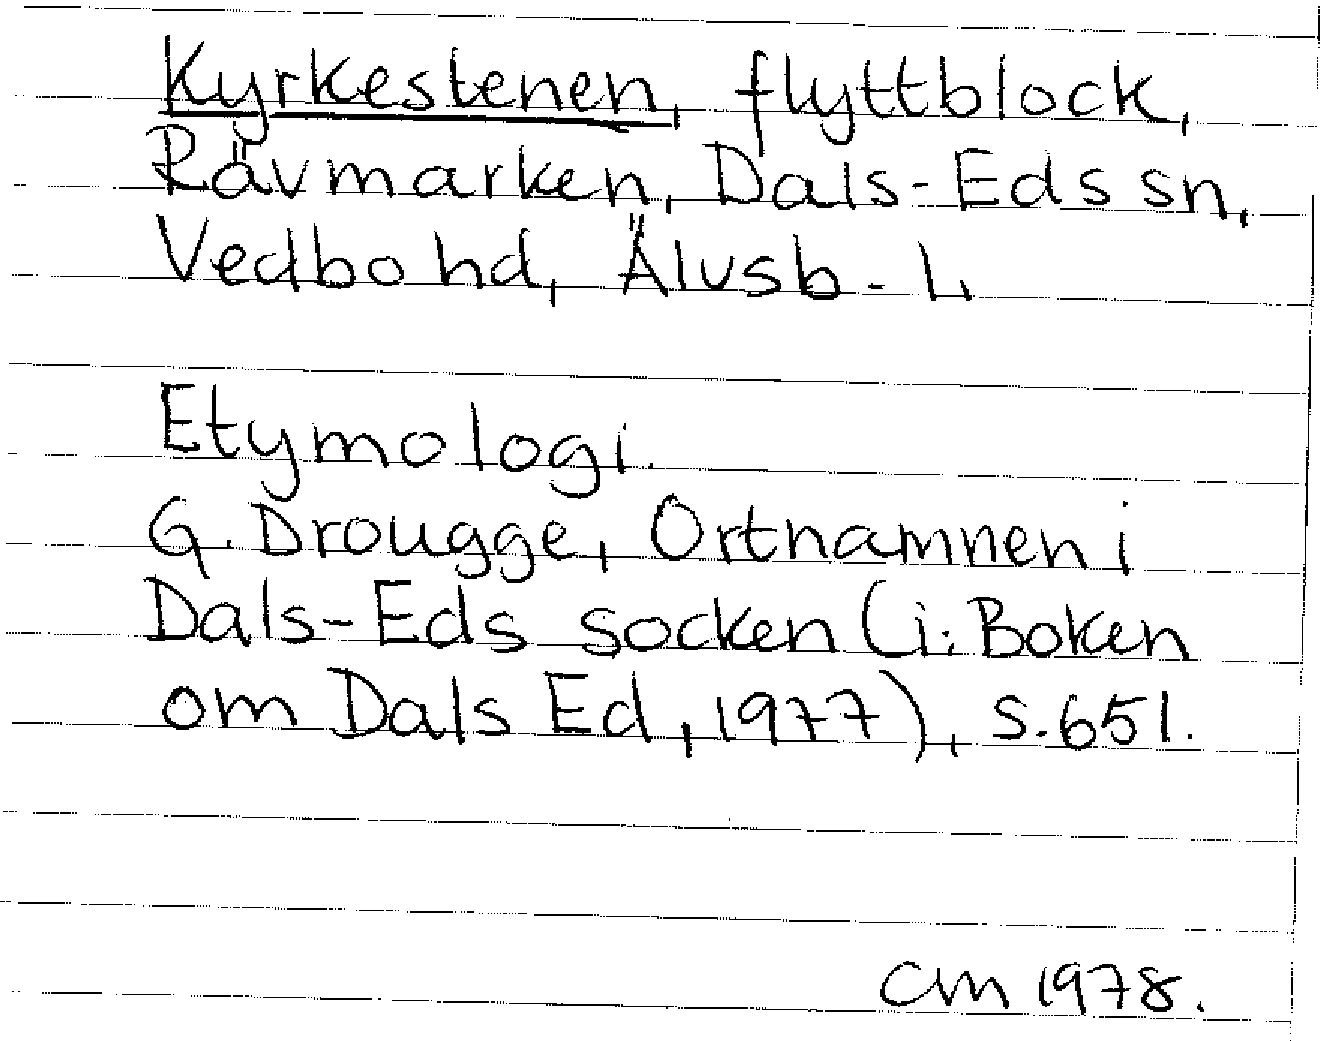 Kyrkestenen, flyttblock,
Rävmarken, Dals-Eds sn,
Vedbo hd, Älvsb. L
Etymologi.
G. Drougge, Ortnamnen i
Dals-Eds socken (i: Boken
om Dals Ed, 1977), s. 651.
CM 1978.